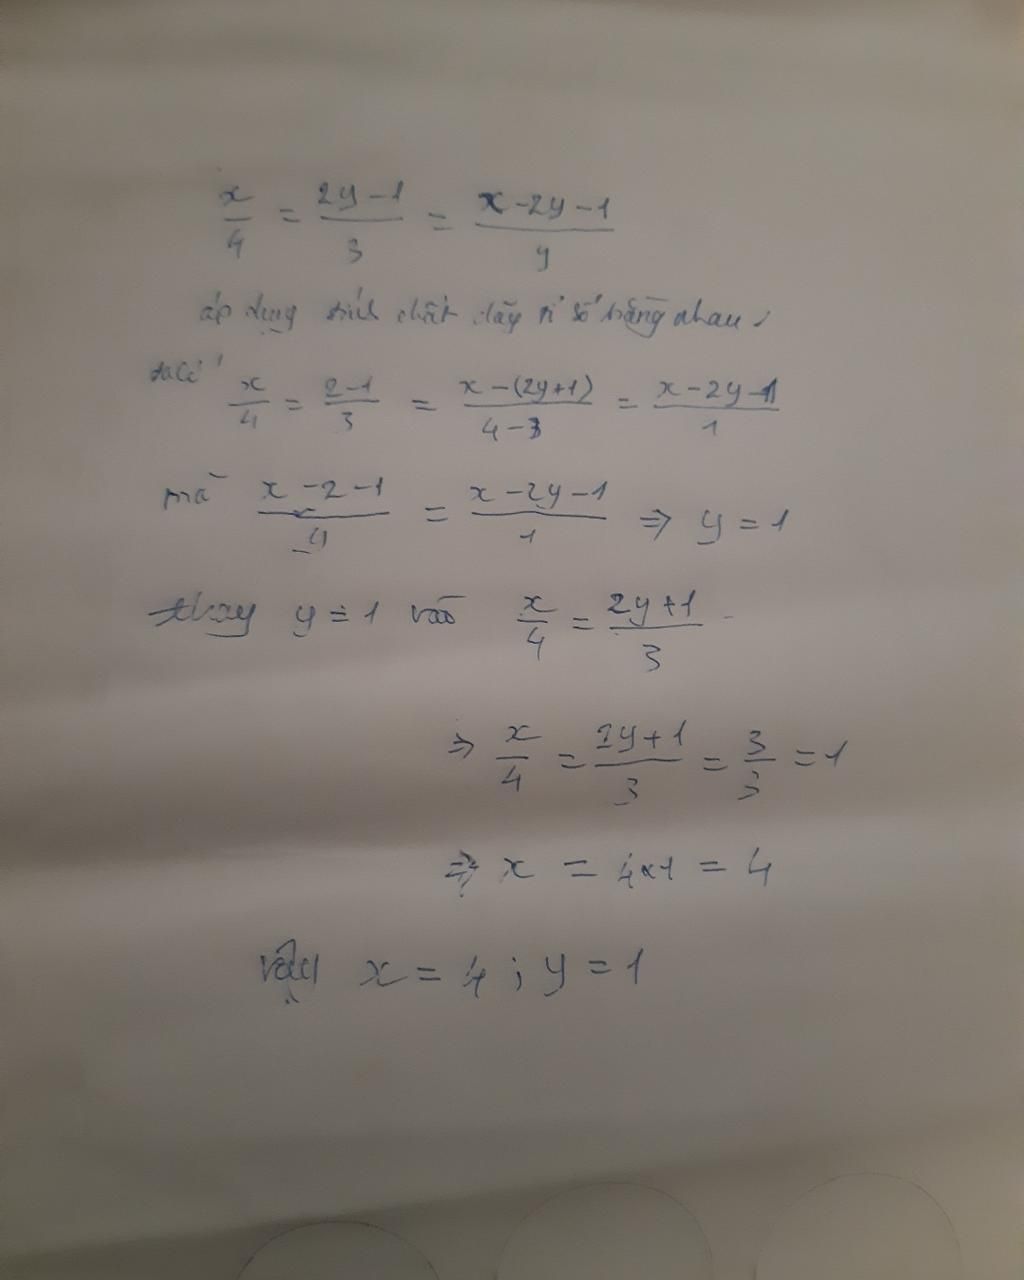 x/4 = 2y-1/3 = x-2y-1/y
áp dụng tính chất dãy tỉ số bằng nhau
ta có x/4 = 2-1/3 = x-(2y+1)/4-3 = x-2y-1/1
mà x-2-1/y = x-2y-1/1 ⇒ y = 1
thay y = 1 vào x/4 = 2y+1/3
⇒ x/4 = 2y+1/3 = 3/3 = 1
⇒ x = 4x1 = 4
vậy x = 4 ; y = 1